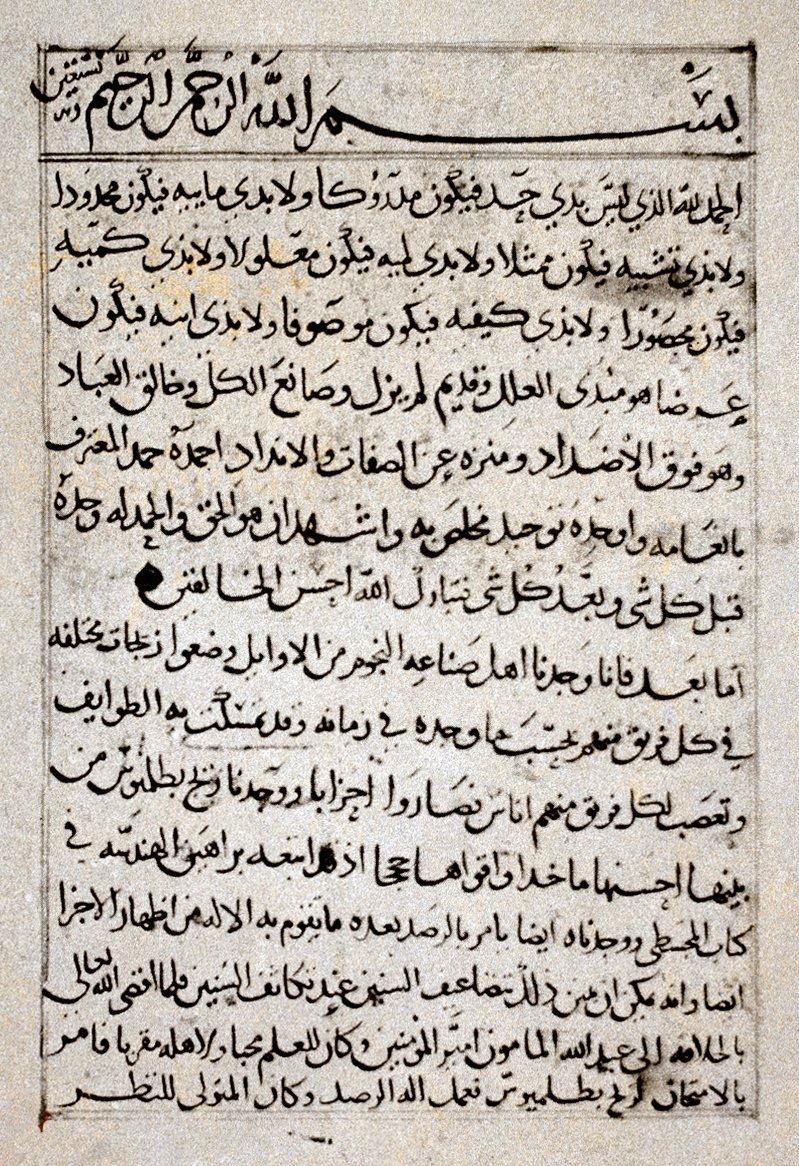 بسم الله الرحمن الرحيم
الحمد لله الذي ليس بذي حد فيكون مدروكا ولا بذي مايية فيكون محدودا
ولا بذي تشبيه فيكون ممثلا ولا بذي لمية فيكون معلولا ولا بذي كميه
فيكون محصورا ولا بذي كيفيه فيكون موصوفا ولا بذي اينيه فيكون
عرضا هو مبدى العلل وقديم لم يزل وصانع الكل وخالق العباد
وهو فوق الأضداد ومنزه عن الصفات والانداد احمده حمد المعترف
بانعامه واوحده توحيد مخلص به واشهد ان هو الحق والحمد له وحده
قبل كل شى وبعد كل شى فتبارك الله احسن الخالقين
اما بعد فانا وجدنا اهل صناعه النجوم من الاوايل وضعوا زيجات مختلفه
في كل فريق منهم بحسب ما وجده في زمانه وقد تمسكت به الطوايف
وتعصب لكل فريق منهم اناس فصاروا احزابا ووجدنا زيج بطلميوس من
بينها احسنها ماخذا واقواها حججا اذ معه براهين الهندسه في
كتاب المجسطي ووجدناه ايضا يامر بالرصد بعده ما يقوم به الاله من اظهار الاجزا
ايضا وانه يمكن ان يبين ذلك بتضاعف السنين عند تكاثف السنين فلما افضى الله تعالى
بالخلافه الى عبد الله المامون امير المؤمنين وكان للعلم محبا ولاهله مقربا فامر
بالامتحان لزيج بطلميوس فعمل اله الرصد وكان المتولى للنظر